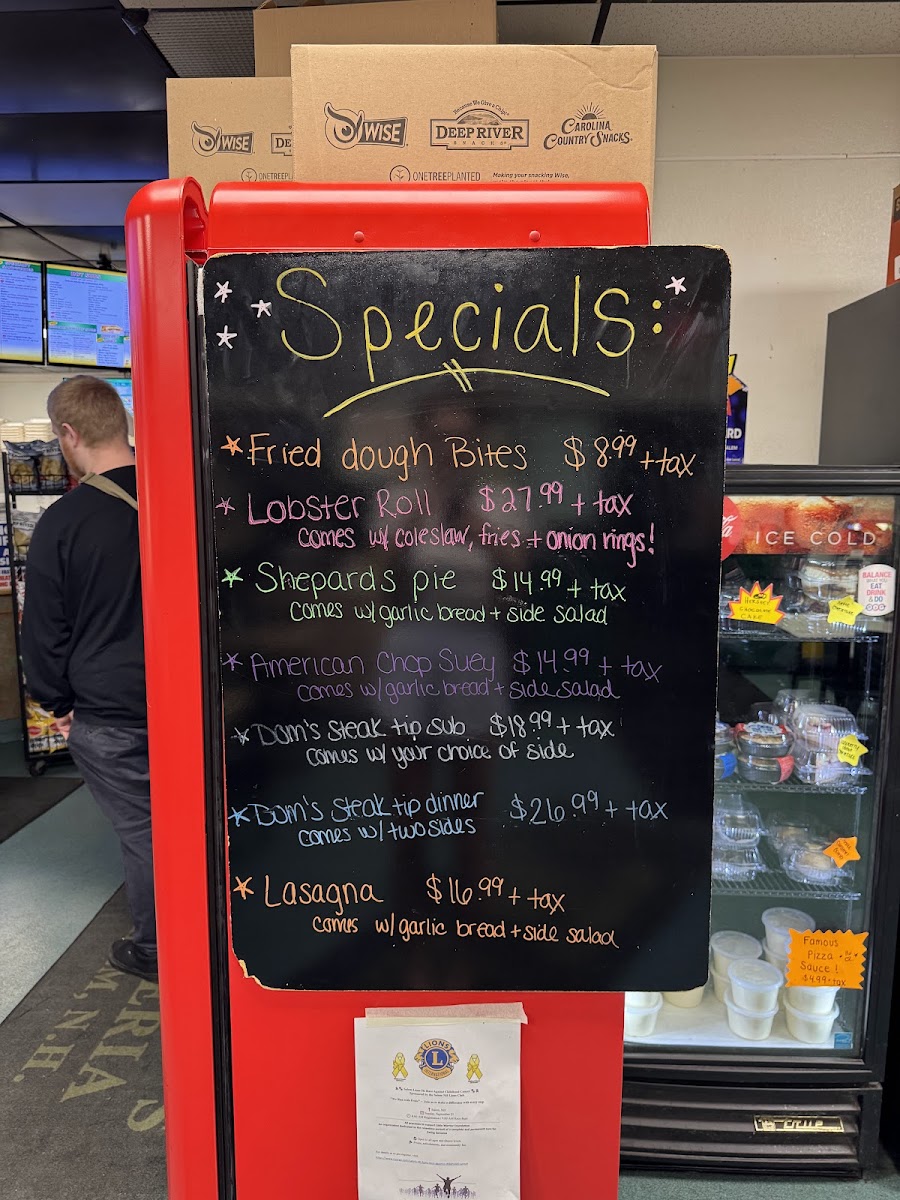 WISE
DE
Because We Give a Chip!
DEEP RIVER
SNACKS
CAROLINA
COUNTRY SNACKS
ONETREEPL
ONETREEPLANTED
Making your snacking Wise,
Specials:
Fried dough Bites $8.99 + tax
Lobster Roll $27.99 + tax
comes w/ coleslaw, fries + onion rings!
Shepards pie $14.99 + tax
comes w/garlic bread + side salad
American Chop Suey $14.99 + tax
comes w/garlic bread + side salad
Dom's steak tip sub $18.99 + tax
comes w/ your choice of side
Dom's steak tip dinner $26.99 + tax
comes w/ two sides
Lasagna $16.99 + tax
comes w/ garlic bread + side salad
ICE COLD
BALANCE
WHAT YOU
EAT
DRINK
& DO
Hershey
Chocolate
Cake
Famous
Pizza
Sauce!
$4.99 + tax
true
LIONS
L
INTERNATIONAL
ERIA'S
M, N.H.